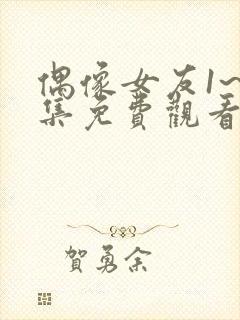 偶像女友1~
集免費觀看
賀勇余